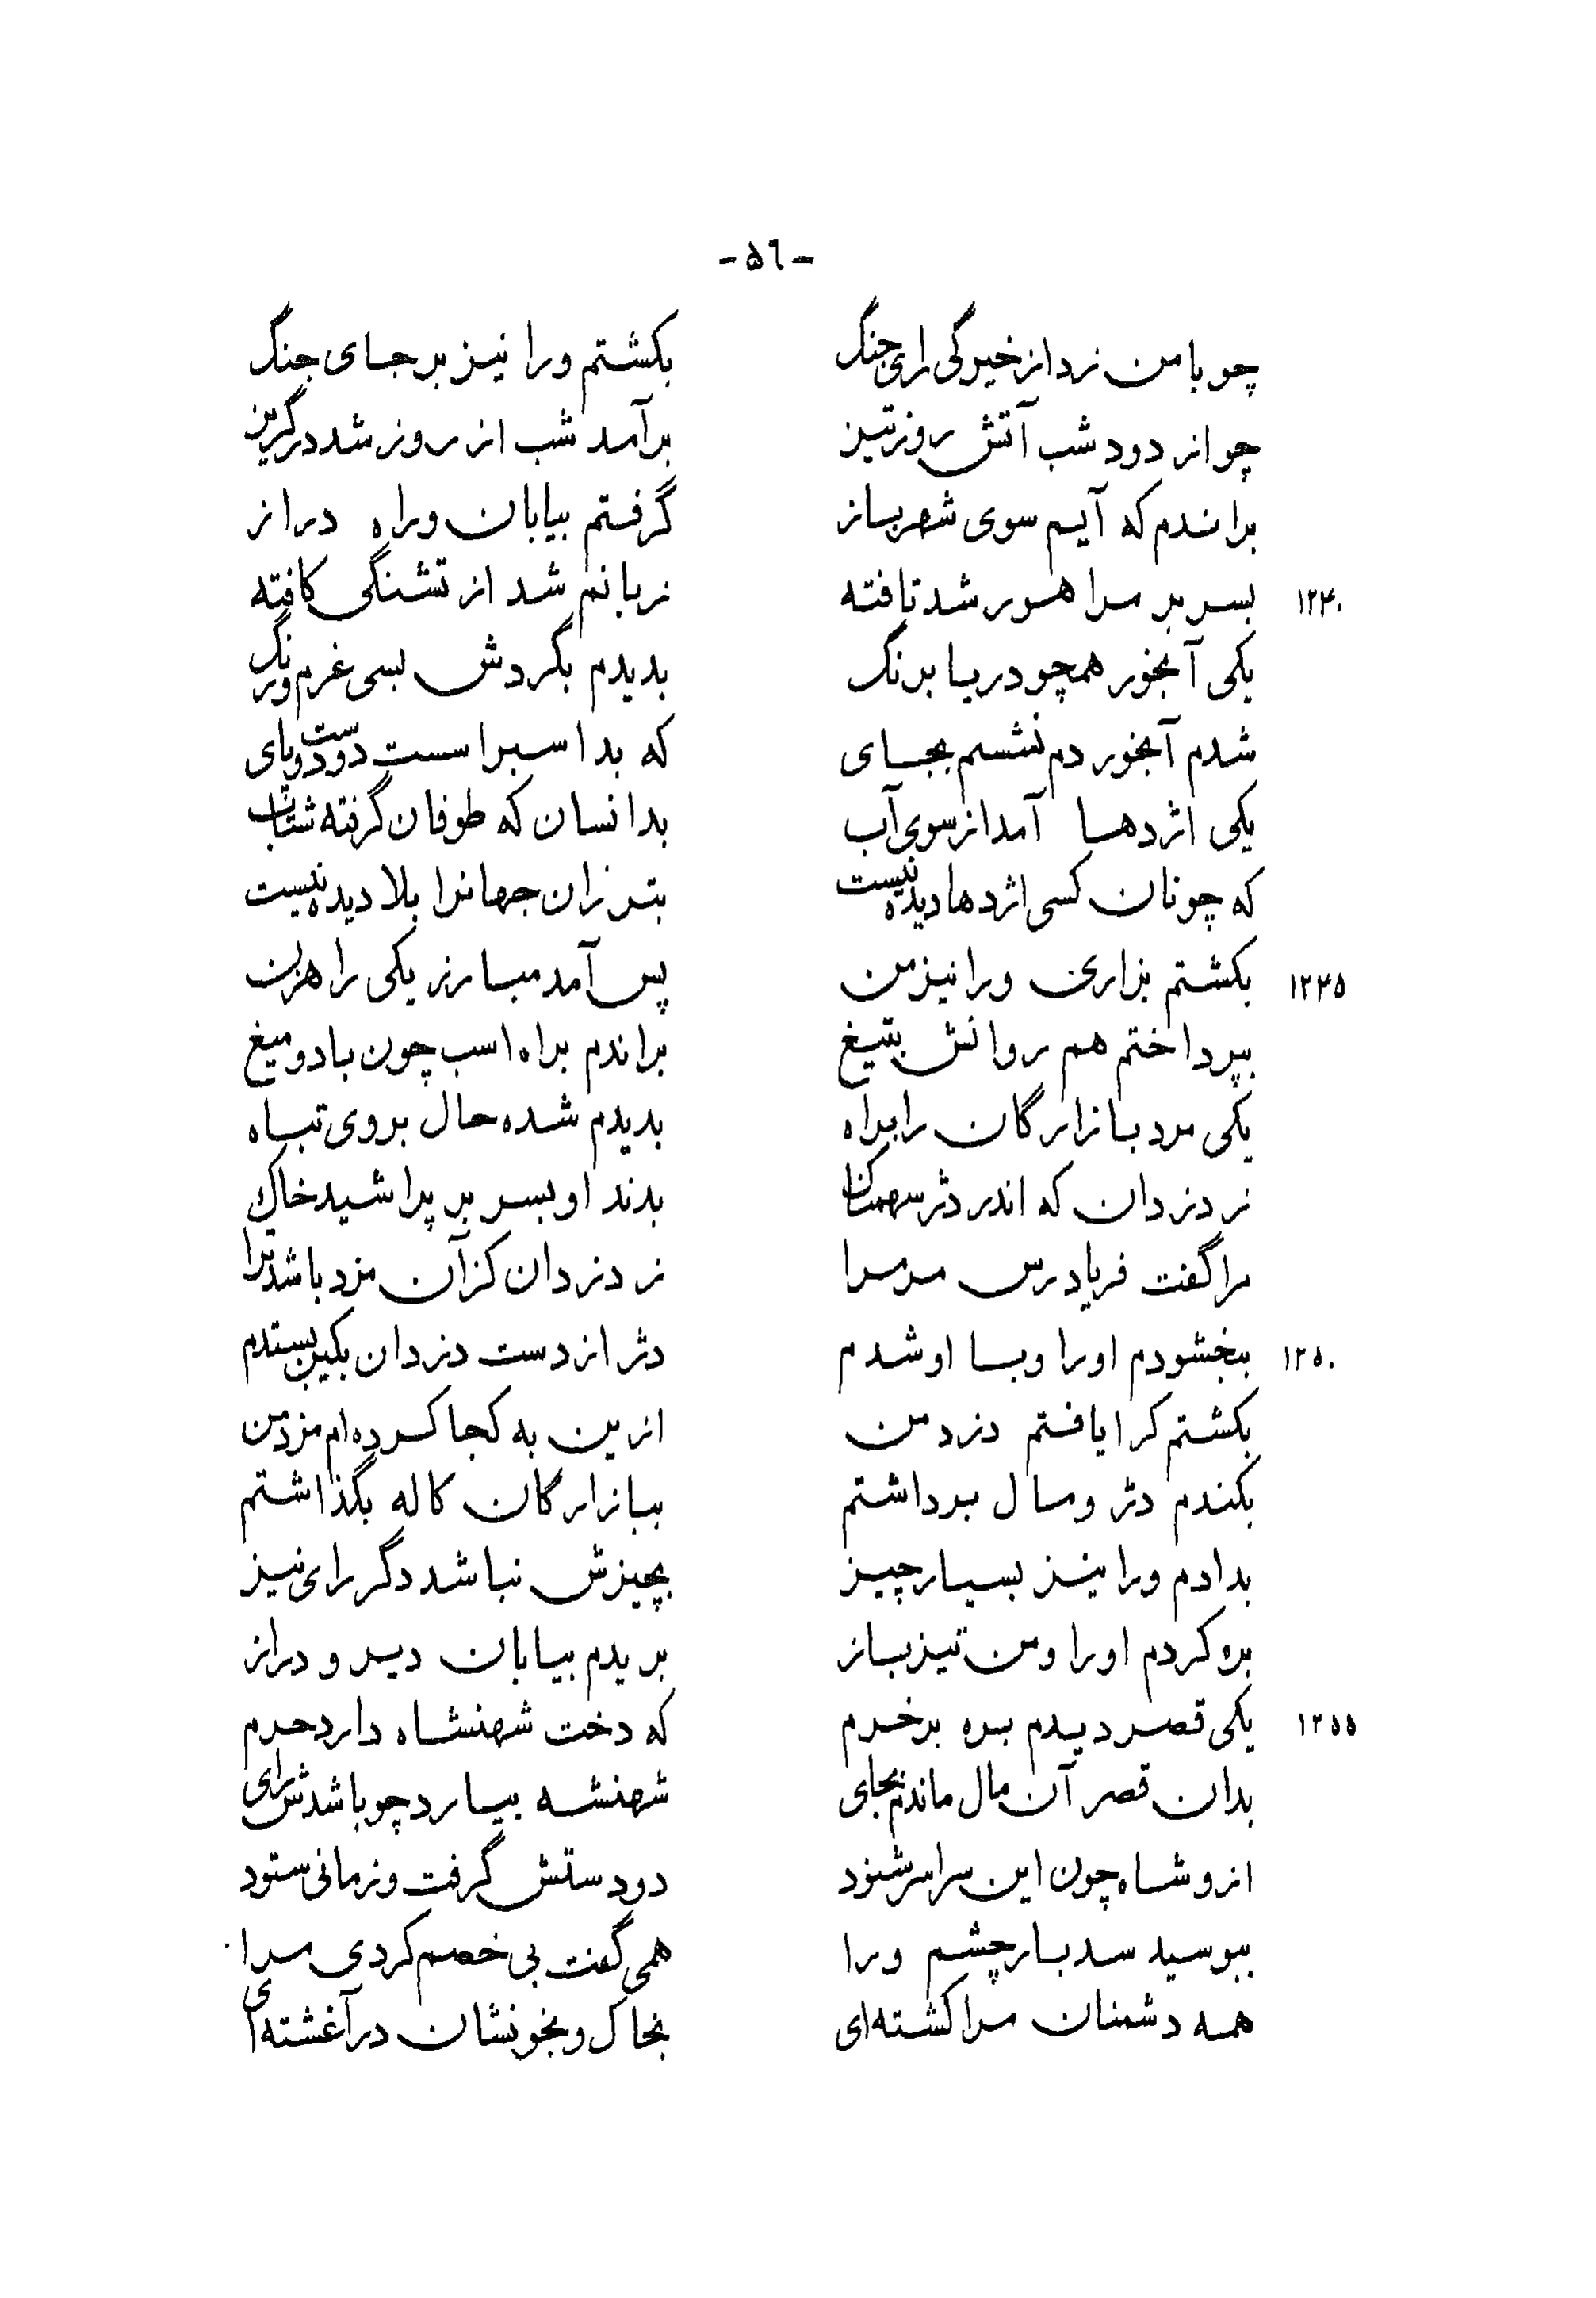 -۵٦-
چو با من زد از خیرگی رای جنگ بکشتم ورا نیز بر جای جنگ
چو از دود شب آتش روز تیز برآمد شب از روز شد در گریز
براندم که آیم سوی شهر باز گرفتم بیابان و راه دراز
۱۲۴۰ بسر بر مرا هور شد تافته زبانم شد از تشنگی کافته
یکی آبخور همچو دریا برنگ بدیدم بگردش بسی غرم و رنگ
شدم آبخور دم نشستم بجای که بد اسبرا سست دو دست و پای
یکی اژدها آمد از سوی آب بدانسان که طوفان گرفته شتاب
که چونان کسی اژدها دیده نیست بتر زان جهانرا بلا دیده نیست
۱۲۴۵ بکشتم بزاری ورا نیز من پس آمد مبارز یکی راهزن
بپرداختم هم روانش بتیغ براندم براه اسب چون باد و میغ
یکی مرد بازارگان را براه بدیدم شده حال بروی تباه
ز دزدان که اندر دژ سهمناک بدند او بسر بر پراشید خاک
مرا گفت فریادرس مر مرا ز دزدان کز آن مزد باشد ترا
۱۲۵۰ ببخشودم او را و با او شدم دژ از دست دزدان بکین بستدم
بکشتم کرا یافتم دزد من ازین به کجا کرده‌ام مزد من
بکندم دژ و مال برداشتم ببازارگان کاله بگذاشتم
بدادم ورا نیز بسیار چیز بچیزش نباشد دگر رای نیز
بره کردم او را و من تیز باز بریدم بیابان دیر و دراز
۱۲۵۵ یکی قصر دیدم بره بر خرم که دخت شهنشاه دارد حرم
بدان قصر آن مال ماندم بجای شهنشه بیارد چو باشدش رای
ازو شاه چون این سراسر شنود دو دستش گرفت و زمانی ستود
ببوسید سد بار چشم ورا همی گفت بی خصم کردی مرا
همه دشمنان مرا کشته‌ای بخاک و بخونشان در آغشته‌ای